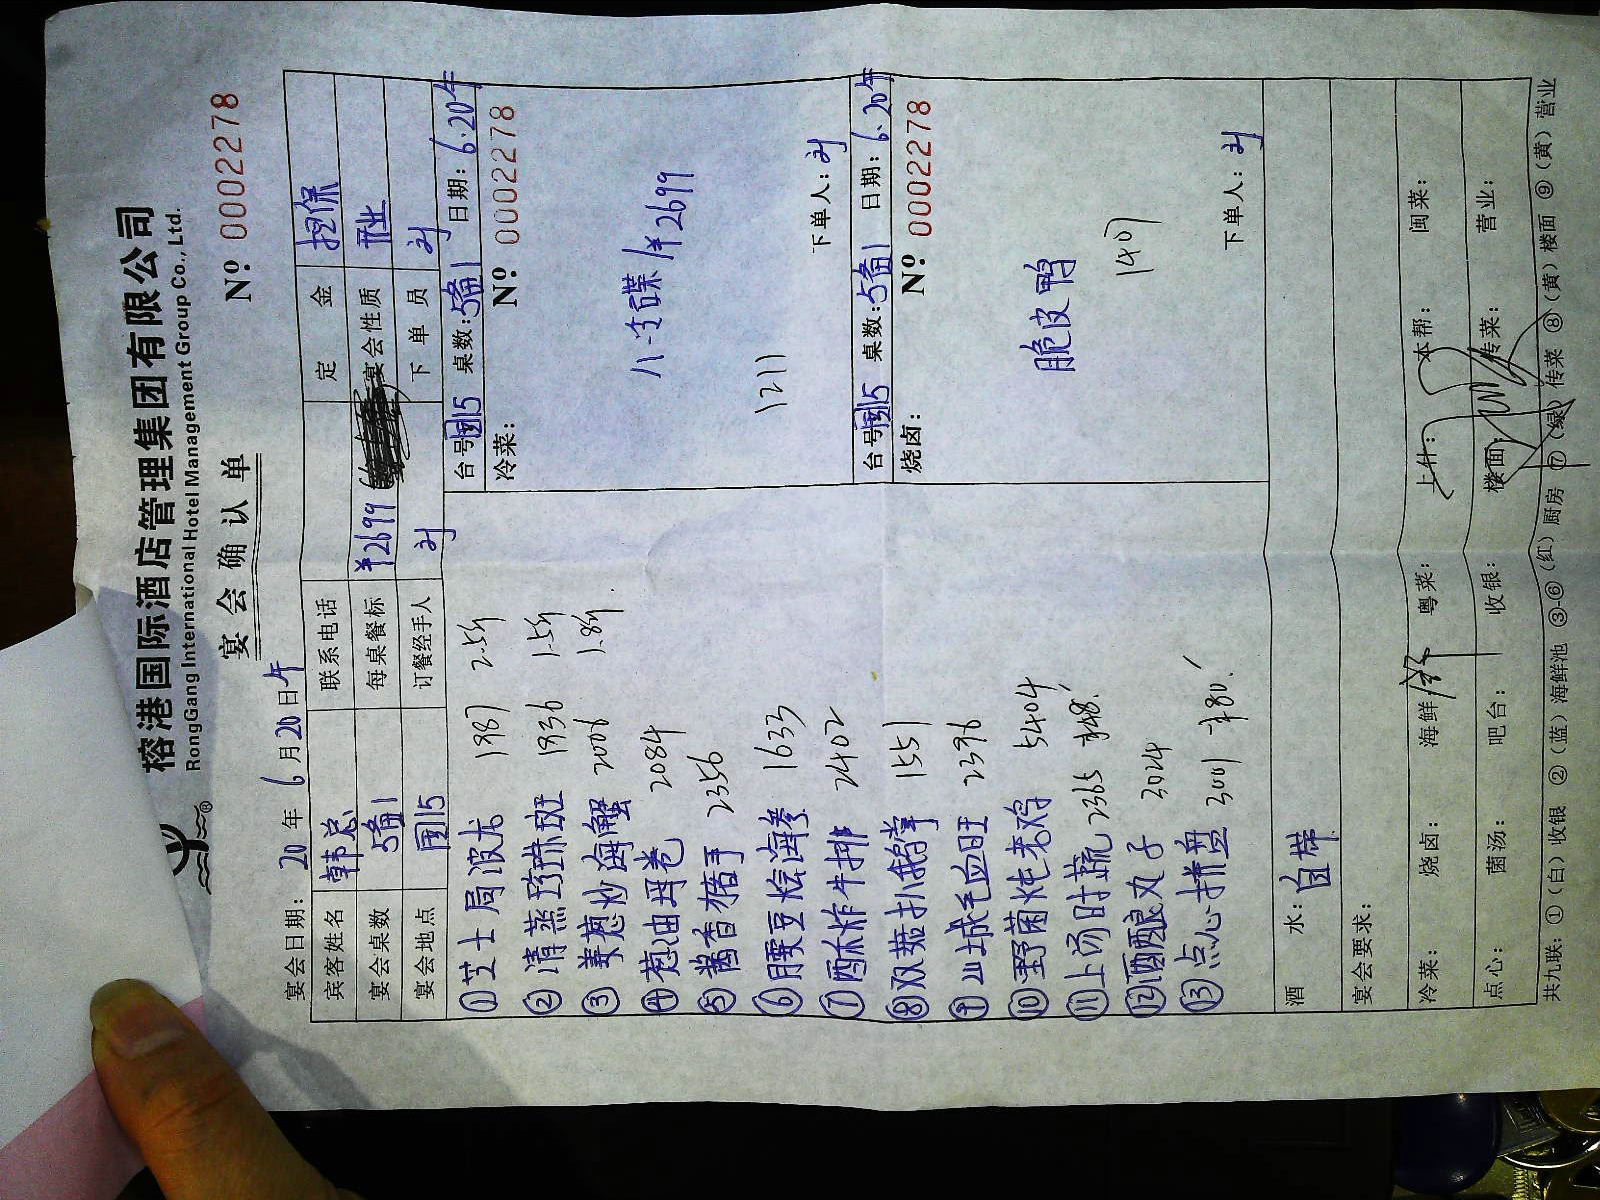 榕港国际酒店管理集团有限公司
RongGang International Hotel Management Group Co., Ltd.
宴会确认单
Nº 0002278
宴会日期: 20 年 6 月 20 日 午
宾客姓名 韩总 联系电话 定金 担保
宴会桌数 5备1 每桌餐标 ¥2699 宴会性质
宴会地点 国15 订餐经手人 下单员
① 芝士局波龙 1987 2.5斤
② 清蒸珍珠斑 1936 1.5斤
③ 姜葱炒海蟹 2006 1.8斤
④ 葱油 卷 2084
⑤ 酱香猪手 2356
⑥ 腰豆烩海参 1633
⑦ 酥炸牛排 2402
⑧ 双菇扒鹅掌 1551
⑨ 山城毛血旺 2396
⑩ 野菌炖老鸡 5404
⑪ 上汤时蔬 2365
⑫ 酒酿丸子 3024
⑬ 点心拼盘 3001
台号 国15 桌数: 5备1 日期: 6.20午
冷菜: Nº 0002278
八 碟 ¥2699
1211
下单人:
台号 国15 桌数: 5备1 日期: 6.20午
烧卤: Nº 0002278
脆皮鸭
1407
下单人:
酒水: 自带
宴会要求:
冷菜: 烧卤: 海鲜 粤菜: 上什: 本帮: 闽菜:
点心: 菌汤: 吧台: 收银: 楼面: 传菜: 营业:
共九联: ①(白)收银 ②(蓝)海鲜池 ③-⑥(红)厨房 ⑦(绿)传菜 ⑧(黄)楼面 ⑨(黄)营业